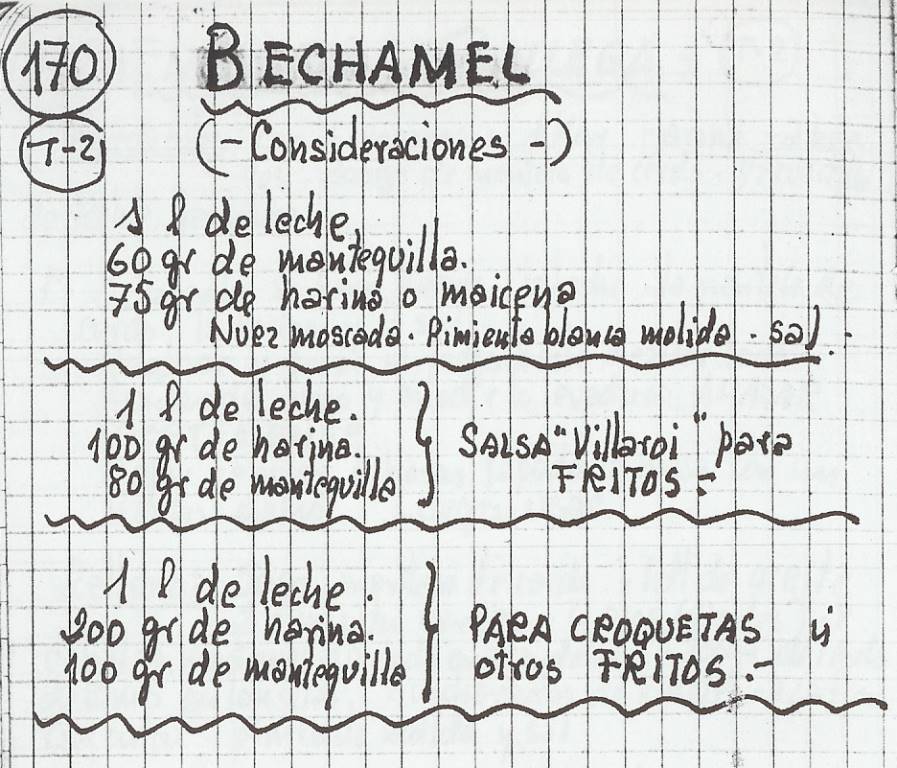 170
BECHAMEL
T-2
(- Consideraciones -)
1 l de leche
60 gr de mantequilla.
75 gr de harina o maicena
Nuez moscada. Pimienta blanca molida. sal.-
1 l de leche.
100 gr de harina.
80 gr de mantequilla
SALSA "Villaroi" para
FRITOS.-
1 l de leche.
200 gr de harina.
100 gr de mantequilla
PARA CROQUETAS ú
otros FRITOS.-